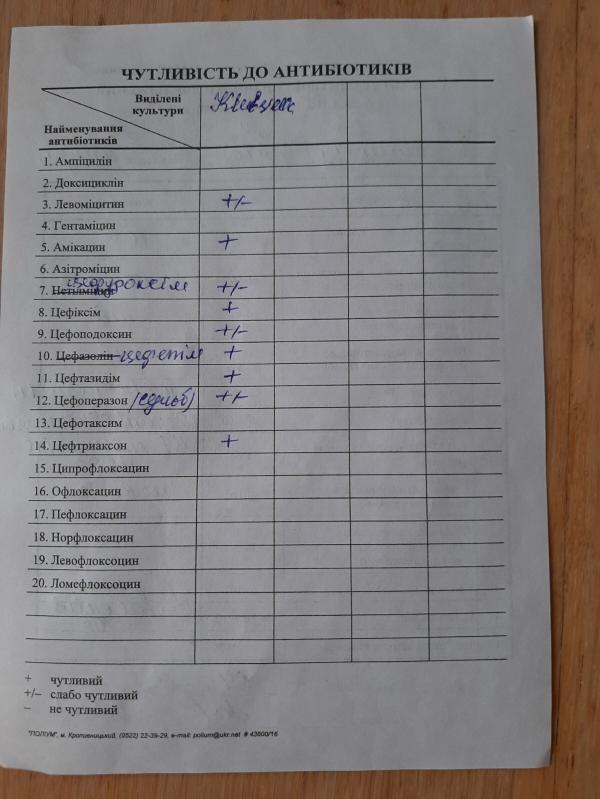 ЧУТЛИВІСТЬ ДО АНТИБІОТИКІВ
Виділені культури
Найменування антибіотиків
1. Ампіцилін
2. Доксициклін
3. Левоміцитин +/-
4. Гентаміцин
5. Амікацин +
6. Азітроміцин
7. цефуроксім +/-
8. Цефіксім +
9. Цефоподоксин +/-
10. Цефазолін цефепім +
11. Цефтазидім +
12. Цефоперазон (сульб) +/-
13. Цефотаксим
14. Цефтриаксон +
15. Ципрофлоксацин
16. Офлоксацин
17. Пефлоксацин
18. Норфлоксацин
19. Левофлоксоцин
20. Ломефлоксоцин
+ чутливий
+/– слабо чутливий
– не чутливий
"ПОЛІУМ", м. Кропивницький, (0522) 22-39-29, e-mail: polium@ukr.net # 43600/16